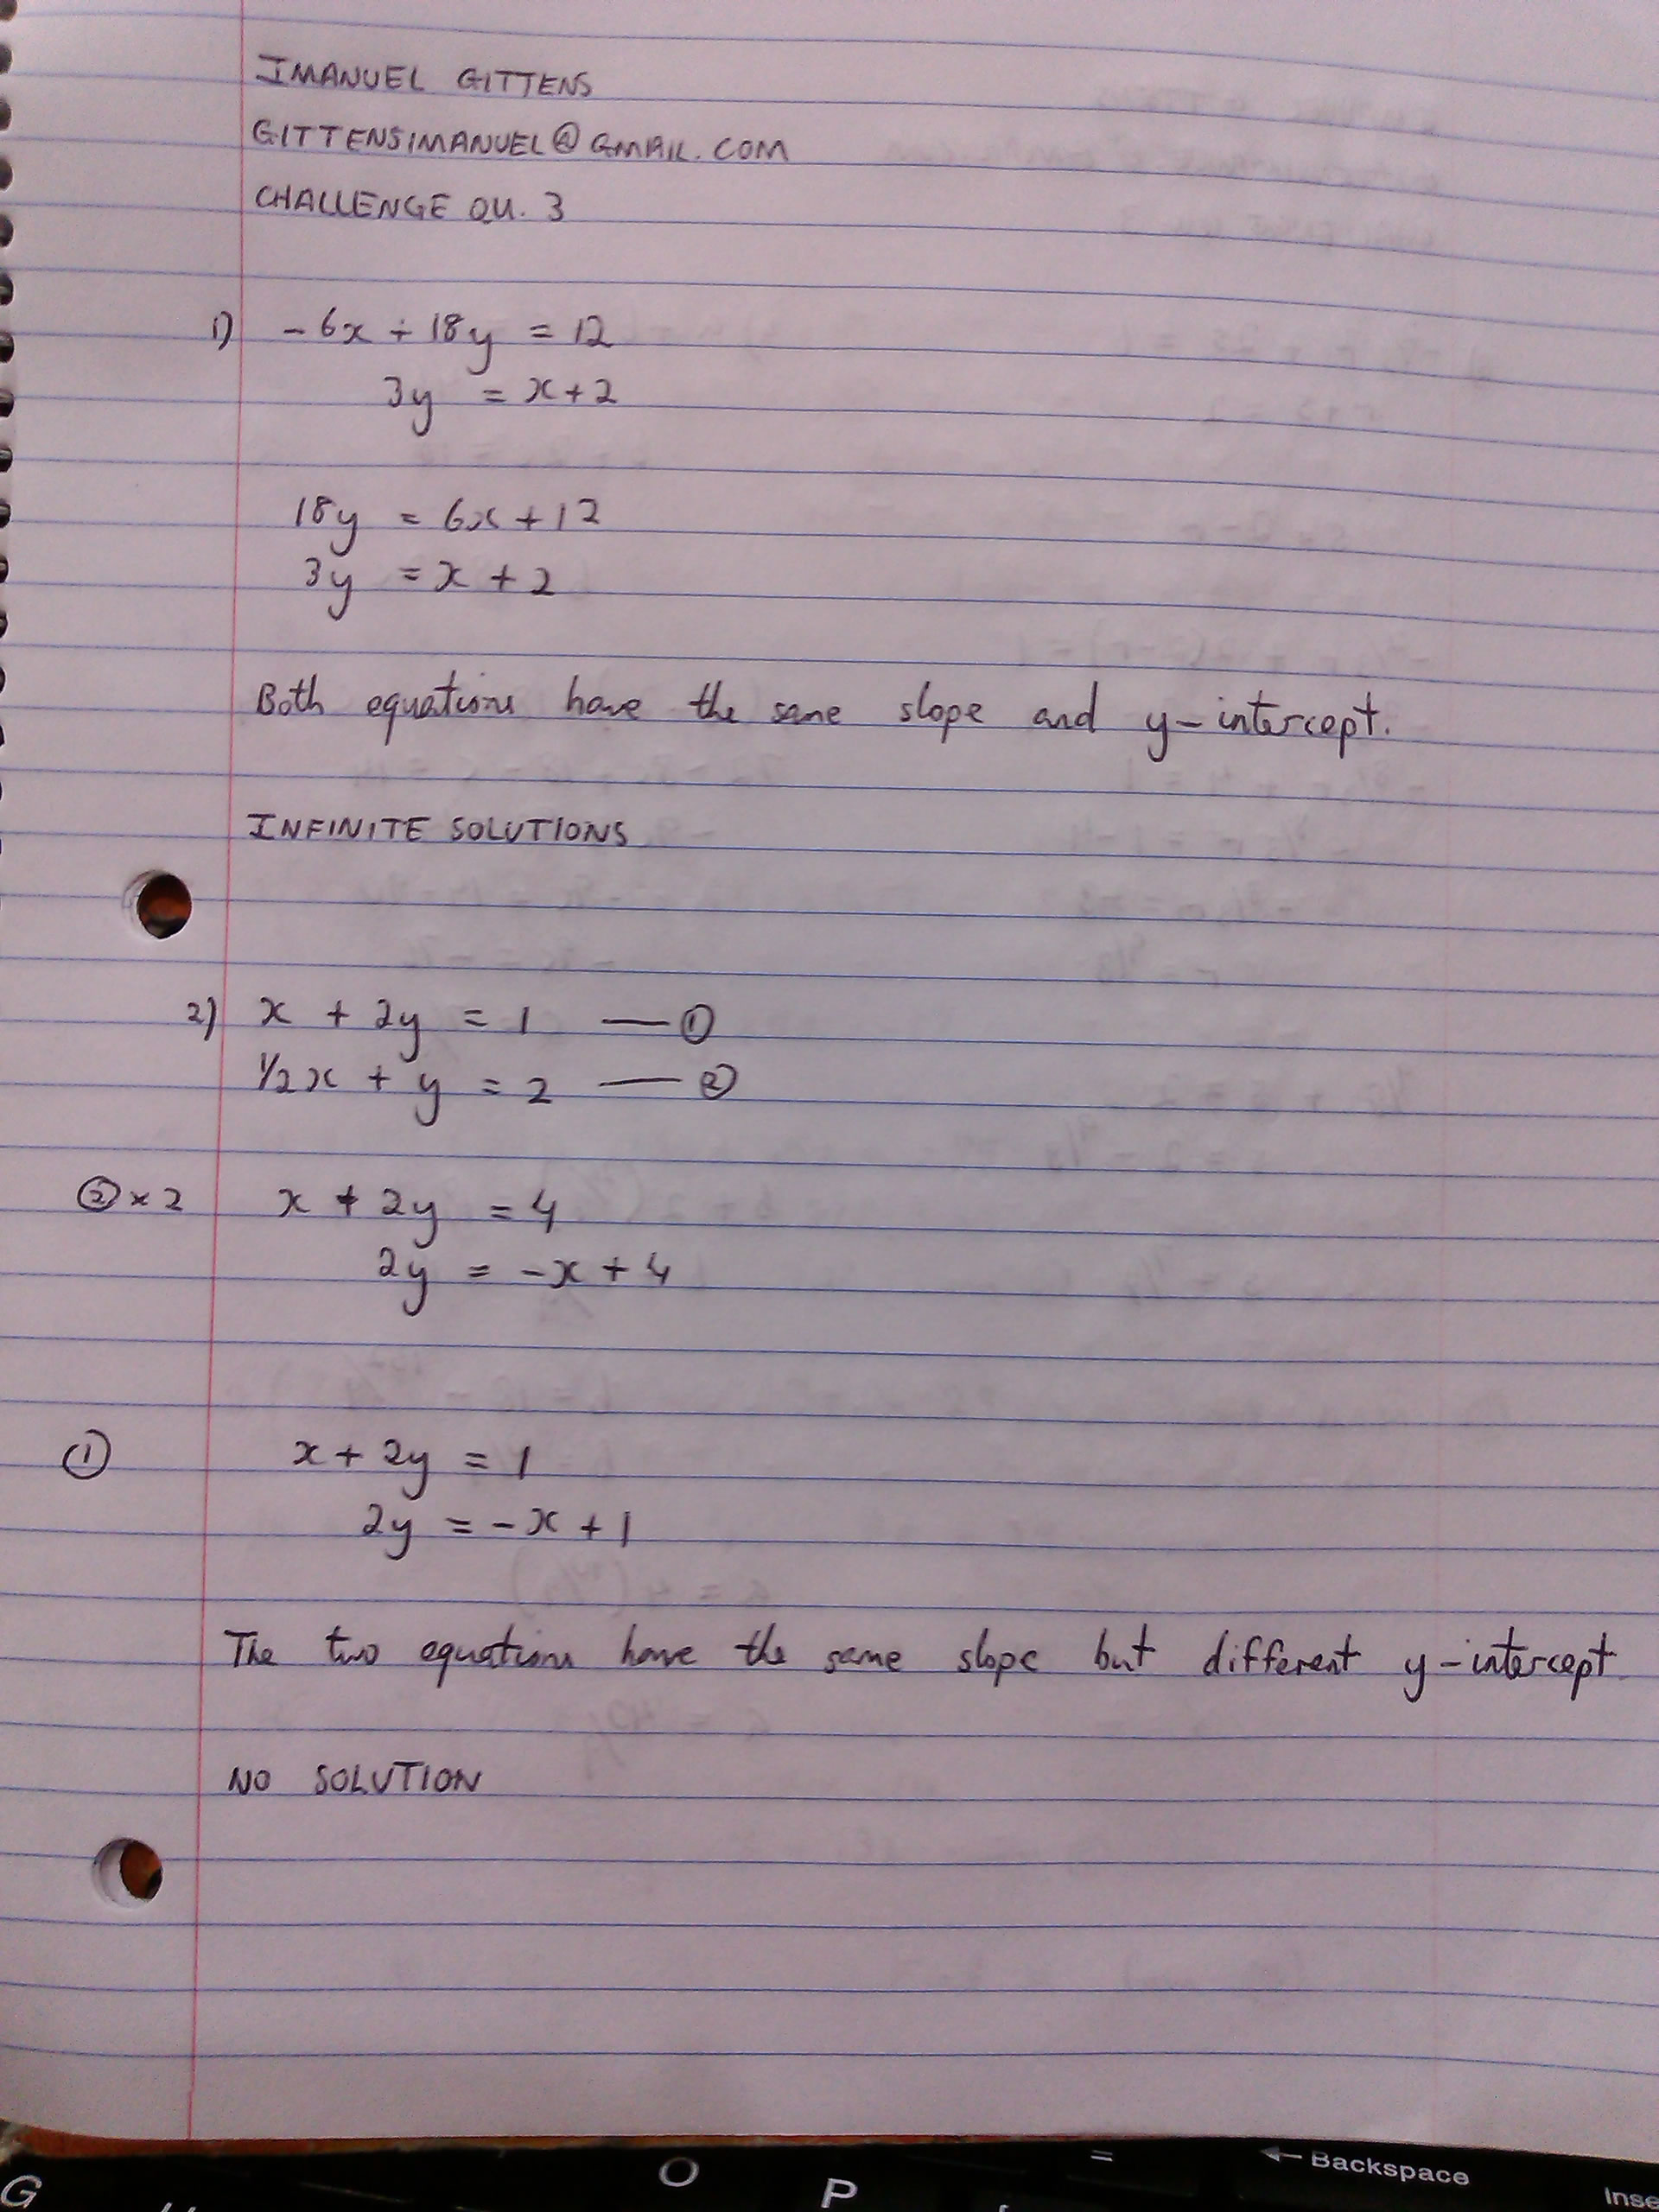 IMANUEL GITTENS
GITTENSIMANUEL@GMAIL.COM
CHALLENGE QU. 3
1) -6x + 18y = 12
3y = x+2
18y = 6x+12
3y = x + 2
Both equations have the same slope and y-intercept.
INFINITE SOLUTIONS
2) x + 2y = 1 — ①
1/2x + y = 2 — ②
②×2 x + 2y = 4
2y = -x + 4
① x + 2y = 1
2y = -x + 1
The two equations have the same slope but different y-intercept
NO SOLUTION
G O P = ← Backspace
Inse